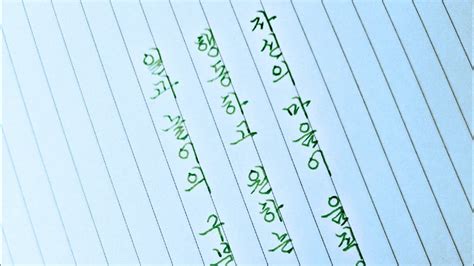 자신의 마음이 움직
행동하고 원하는
일과 놀이의 구분